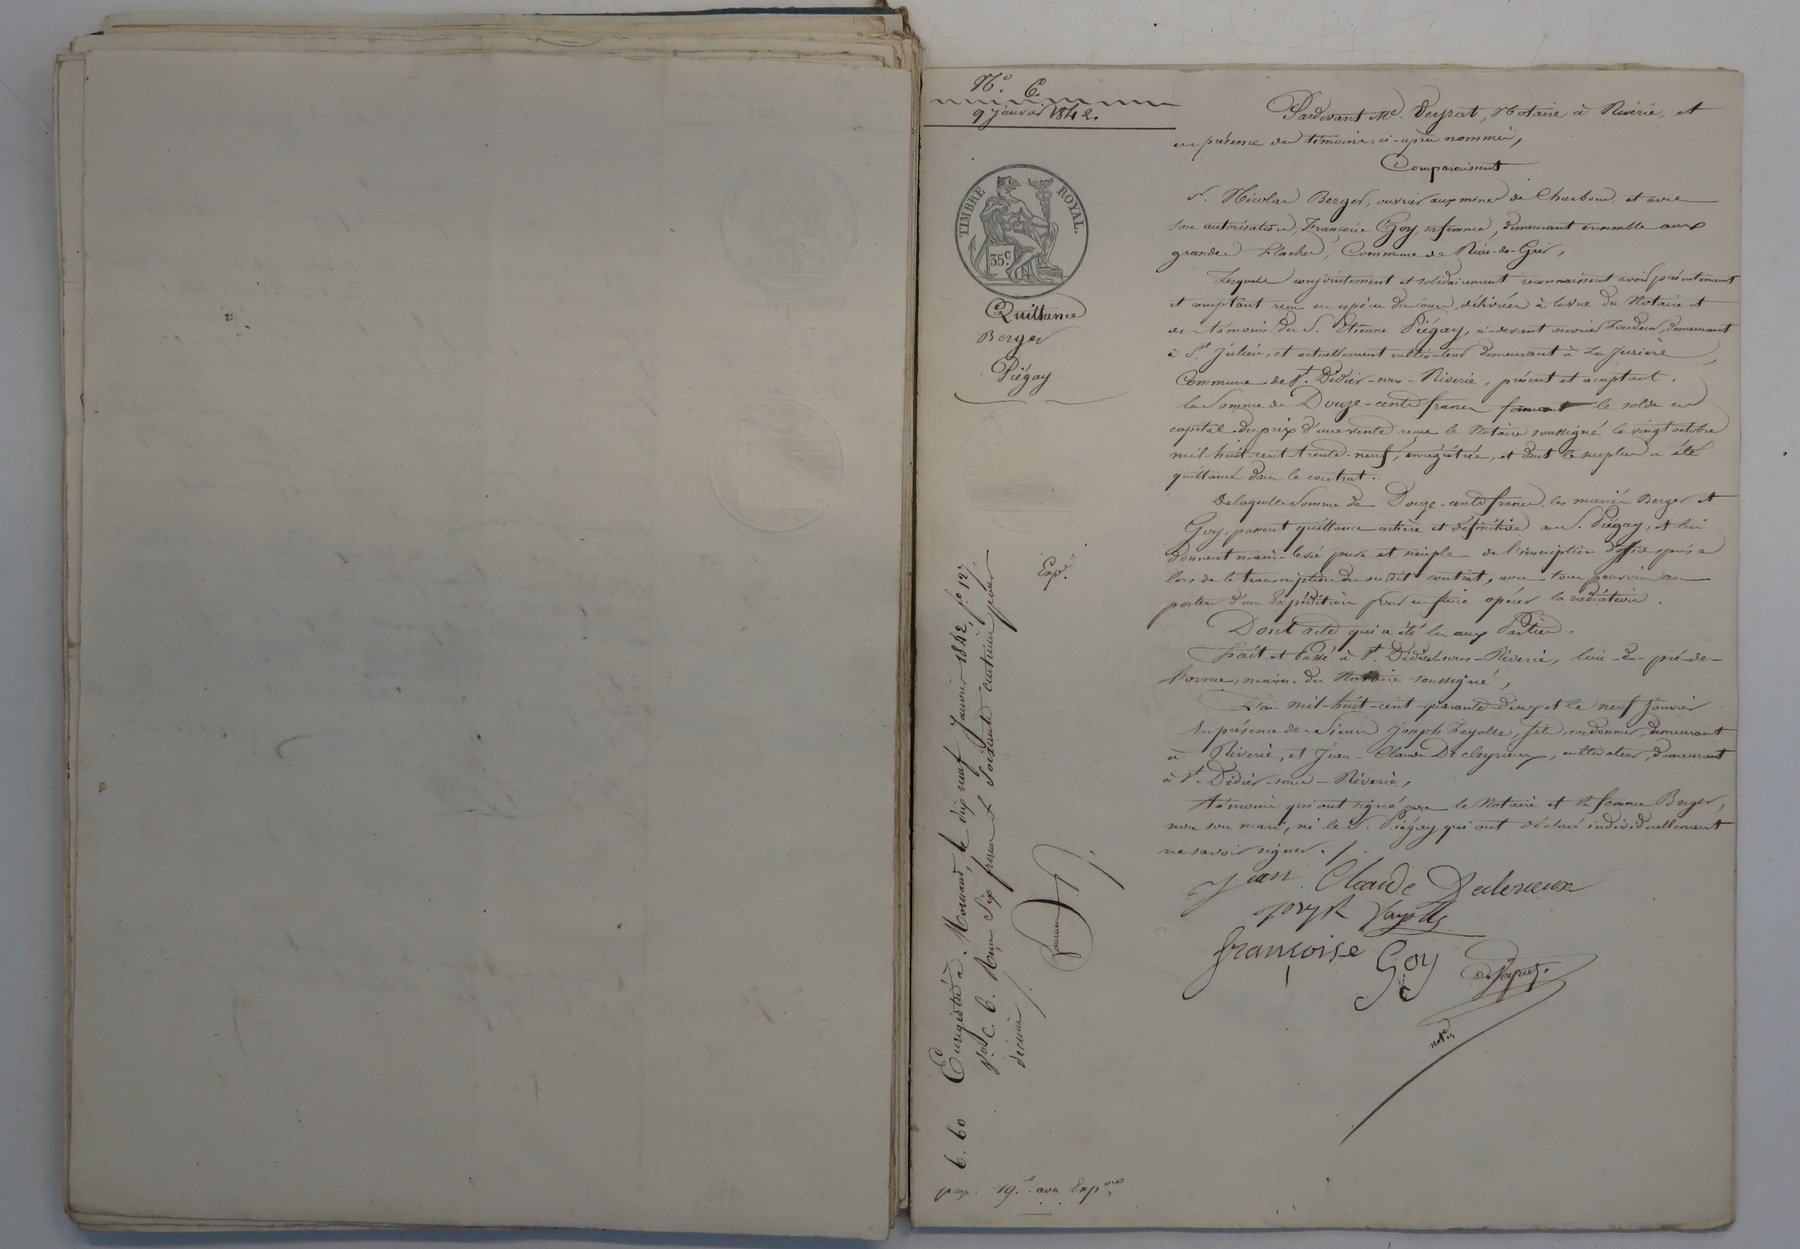 N.° 6.
9 janvier 1842.
TIMBRE ROYAL.
35 c.
Quittance
Berger
Piégay
Exp.
Pardevant Me. Peyrat, Notaire à Riverie, et
en présence des témoins ci-après nommés,
Comparaissent
S. Nicolas Berger, ouvrier aux mines de Charbon, et avec
son autorisation, Françoise Goy, sa femme, demeurant ensemble aux
grandes Flaches, Commune de Rive-de-Gier,
Lesquels conjointement et solidairement reconnaissent avoir présentement
et comptant reçu en espèces du cours, délivrées à la vue du Notaire et
des témoins du S. Etienne Piégay, ci-devant ouvrier fondeur, demeurant
à St. Julien, et actuellement cultivateur demeurant à La Jurierè
Commune de St. Didier-sous-Riverie, présent et acceptant.
la Somme de Douze-cents francs formant le solde en
capital du prix d'une vente reçue le Notaire soussigné le vingt octobre
mil-huit-cent-trente-neuf, enregistrée, et dont le surplus a été
quittancé dans le contrat.
De laquelle Somme de Douze-cents francs, les mariés Berger et
Goy, passent quittance entière et définitive au S. Piégay, et lui
donnent main-levée pure et simple de l'inscription d'office prise
lors de la transcription du susdit contrat, avec tous pouvoirs au
porteur d'une Expédition pour en faire opérer la radiation.
Dont acte qui a été lu aux Parties.
Fait et Passé à St. Didier-sous-Riverie, lieu-du-pré-de-
l'orme, maison du Notaire soussigné,
L'an mil-huit-cent-quarante-deux et le neuf Janvier
En présence des Sieurs Joseph Fayolle, fils, cordonnier, demeurant
à Riverie, et Jean-Claude Decleyrieux, cultivateur, demeurant
à St. Didier-sous-Riverie,
témoins qui ont signé avec le Notaire et la femme Berger,
non son mari, ni le S. Piégay qui ont déclaré individuellement
ne savoir signer.
Jean Claude Declerieux
Joseph Fayolle
françoise Goy
Peyrat
notre
Enregistré à Mornand, le dix neuf Janvier 1842, fo. 127,
Vo. C. 6. Reçu Six francs Soixante centimes pour
décime.
6. 60
19. avec Exp